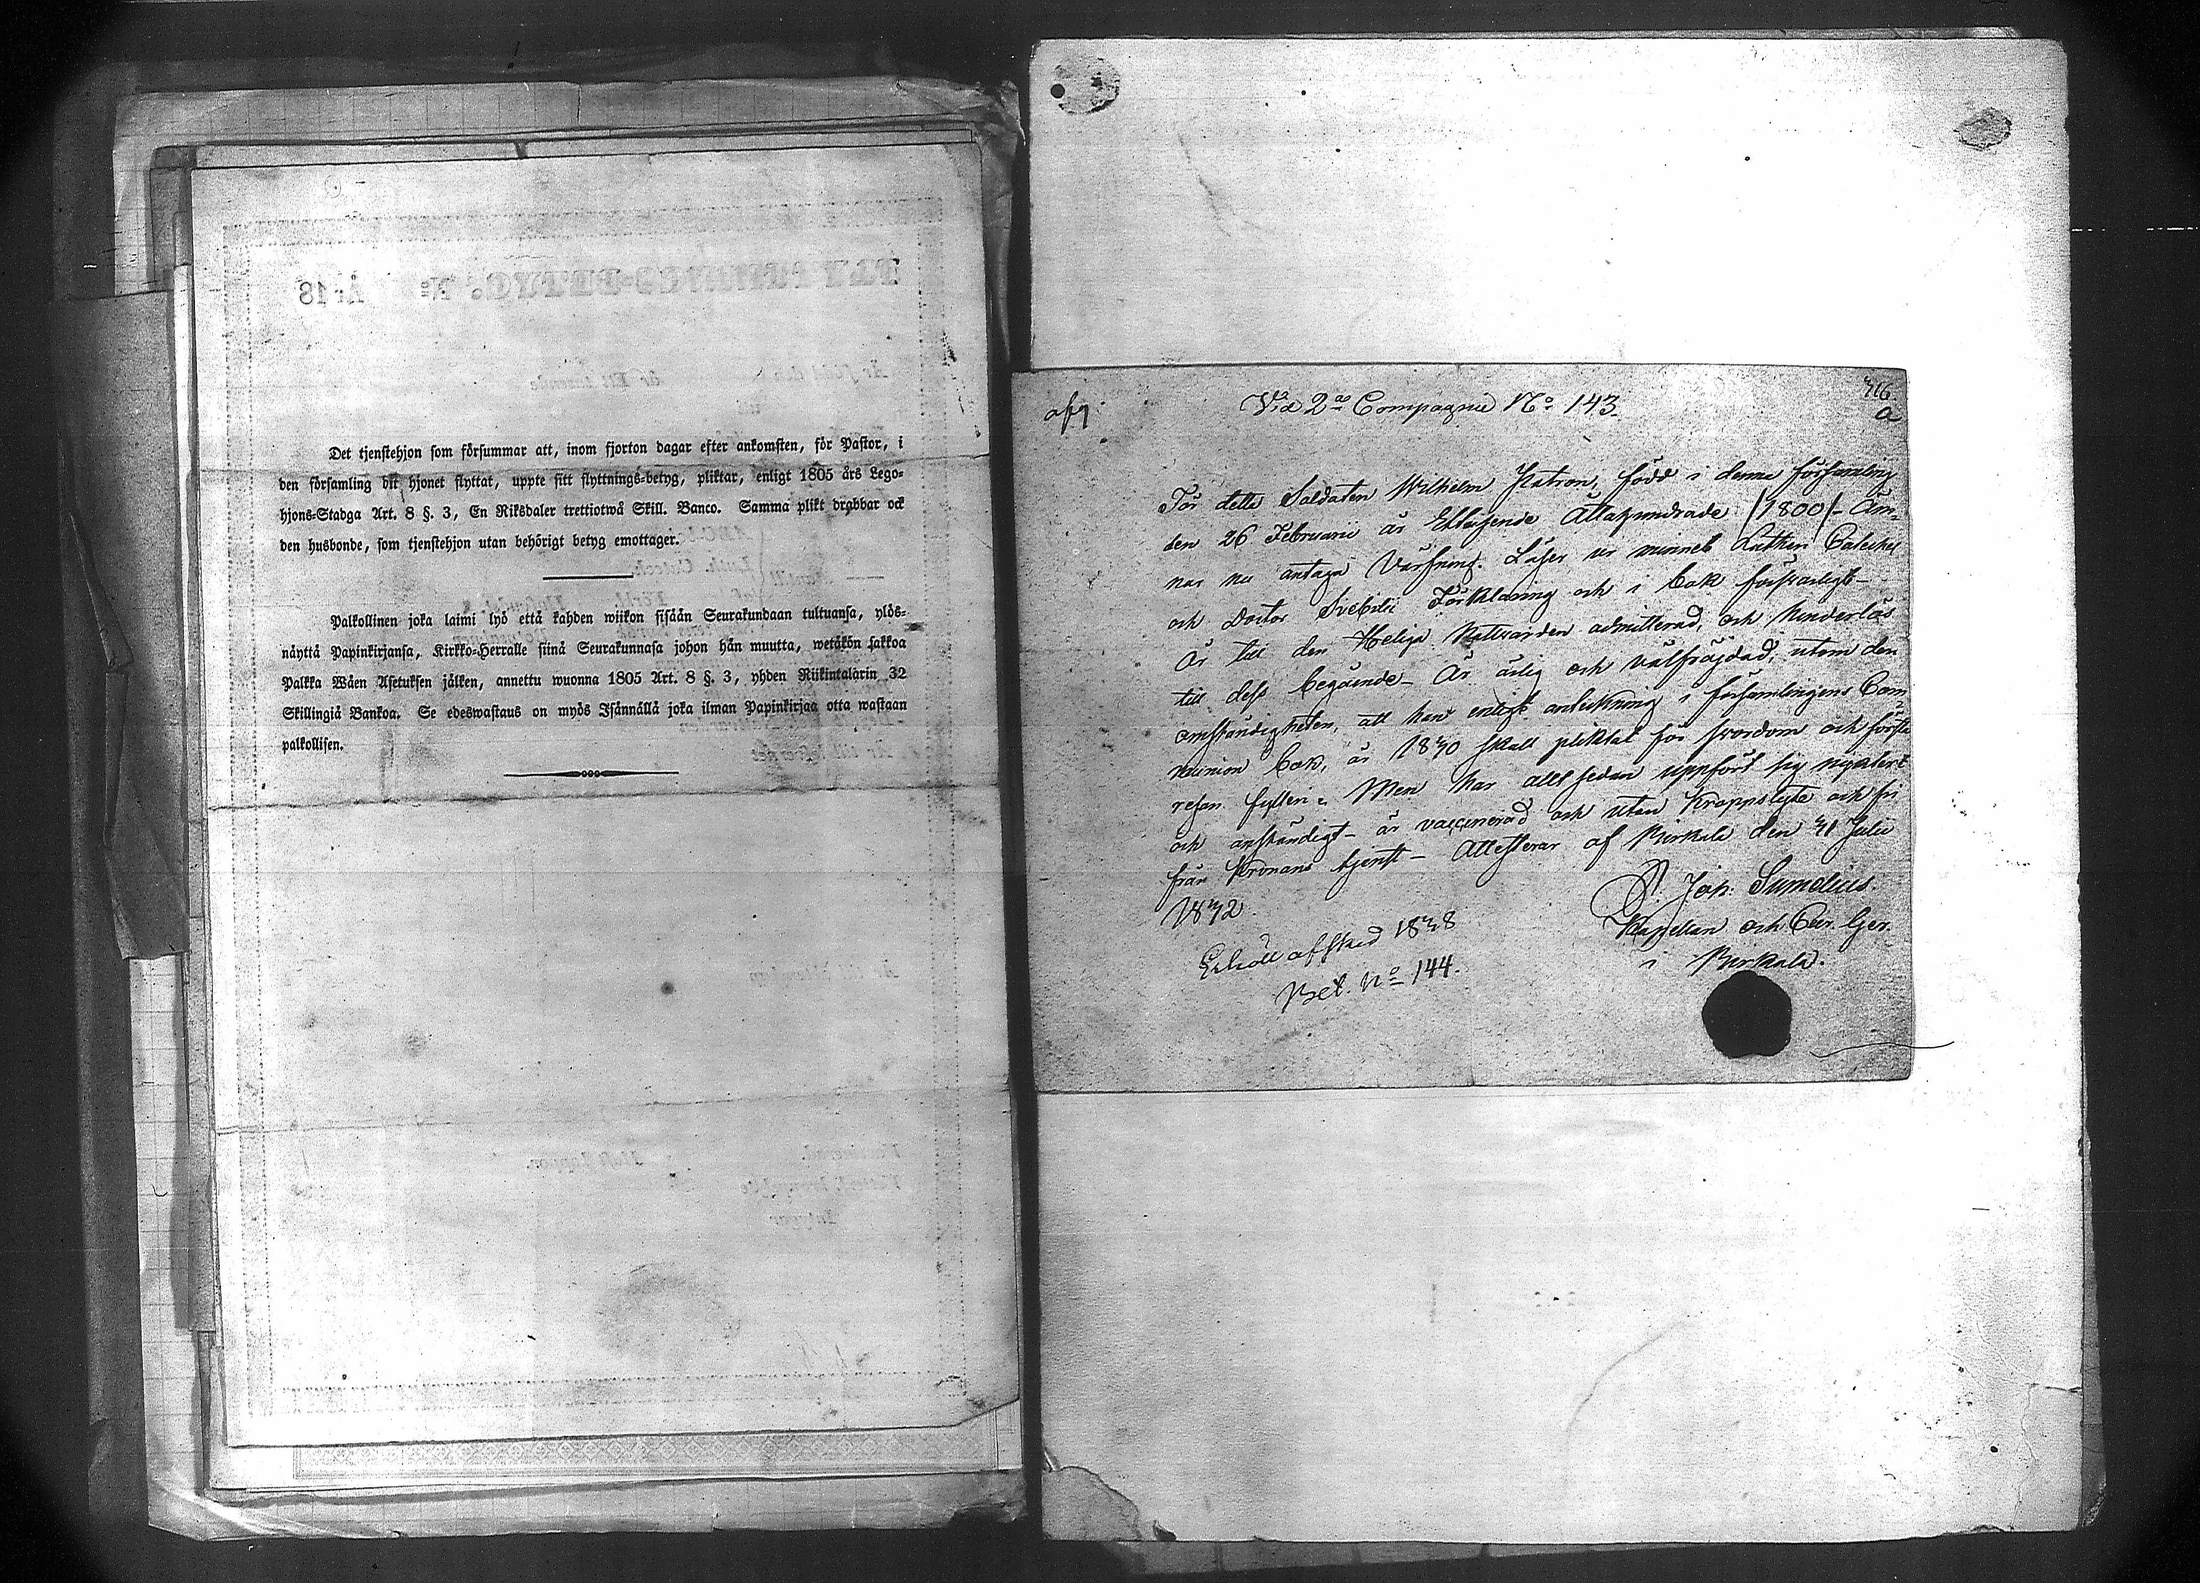 Det tjenstehjon som försummar att, inom fjorton dagar efter ankomsten, för Pastor, i
den församling dit hjonet flyttat, uppte sitt flyttnings-betyg, pliktar, enligt 1805 års Lego-
hjons-Stadga Art. 8 §. 3, En Riksdaler trettiotwå Skill. Banco. Samma plikt drabbar ock
den husbonde, som tjenstehjon utan behörigt betyg emottager.
Palkollinen joka laimi lyö että kahden wiikon sisään Seurakundaan tultuansa, ylös-
näyttä Papinkirjansa, Kirkko-Herralle siinä Seurakunnasa johon hän muutta, wetäkön sakkoa
Palkka Wäen Asetuksen jälken, annettu wuonna 1805 Art. 8 §. 3, yhden Riikintalarin 32
Skillingiä Bankoa. Se edeswastaus on myös Isännällä joka ilman Papinkirjaa otta wastaan
palkollisen.
afg Vid 2a Compagnie No 143. 316.
a
För detta Soldaten Wilhelm Flatron, född i denna församling
den 26 Februarii år Ettusende Åttahundrade /1800/ - Äm-
nar nu antaga Värfning. Läser ur minnet Lutheri Cateches
och Doctor Svebilii Förklaring och i bok försvarligt -
Är till den Heliga Nattvarden admitterad, och hinderlös
till dess begående - Är ärlig och välfräjdad, utom den
omständigheten, att han enligt anteckning i församlingens Com-
munion bok, år 1830 skall pliktat för svordom och första
resan fylleri. Men har allt sedan uppfört sig nycktert
och anständigt - är vaccinerad och utan Kroppslyte och fri
från Kronans tjenst - Attesterar af Birkala den 31 Julii
1832.
Joh: Sumelius.
Kapellan och Cur. Ger.
i Birkala.
Erhöll afsked 1838
Bet. No 144.